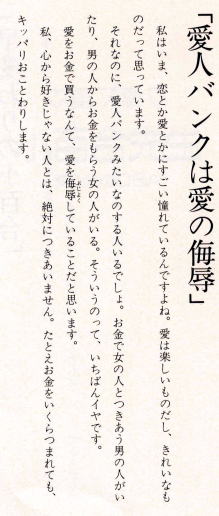 「愛人バンクは愛の侮辱」
　私はいま、恋とか愛とかにすごい憧れているんですよね。愛は楽しいものだし、きれいなも
のだって思っています。
　それなのに、愛人バンクみたいなのする人いるでしょ。お金で女の人とつきあう男の人がい
たり、男の人からお金をもらう女の人がいる。そういうのって、いちばんイヤです。
　愛をお金で買うなんて、愛を侮辱していることだと思います。
　私、心から好きじゃない人とは、絶対につきあいません。たとえお金をいくらつまれても、
キッパリおことわりします。